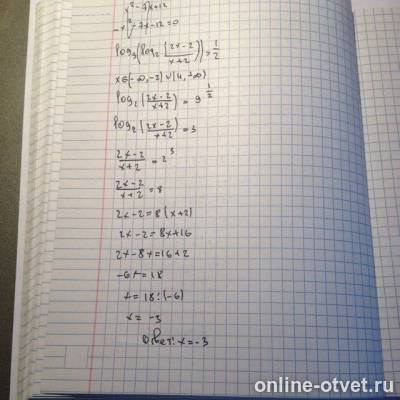 x²-7x+12
-x²-7x-12=0
log₉(log₂(2x-2/x+2))=1/2
x∈(-∞,-2)∪(4,+∞)
log₂(2x-2/x+2)=9^1/2
log₂(2x-2/x+2)=3
2x-2/x+2=2³
2x-2/x+2=8
2x-2=8(x+2)
2x-2=8x+16
2x-8x=16+2
-6x=18
x=18:(-6)
x=-3
Ответ: x=-3
online-otvet.ru